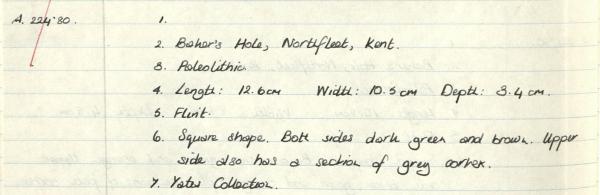 A. 224'80. 1.
2. Baker's Hole, Northfleet, Kent.
3. Paleolithic.
4. Length: 12.6cm Width: 10.5cm Depth: 3.4cm.
5. Flint.
6. Square shape. Both sides dark green and brown. Upper
side also has a section of grey cortex.
7. Yates Collection.